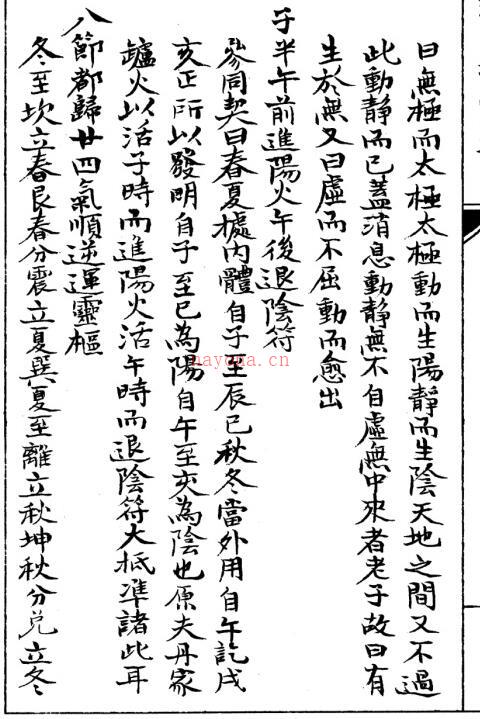 曰無極而太極太極動而生陽靜而生陰天地之間又不過
此動靜而已蓋消息動靜無不自虛無中來者老子故曰有
生於無又曰虛而不屈動而愈出
子半午前進陽火午後退陰符
參同契曰春夏據內體自子至辰巳秋冬當外用自午訖戌
亥正所以發明自子至巳為陽自午至亥為陰也原夫丹家
鑪火以活子時而進陽火活午時而退陰符大抵準諸此耳
八節都歸廿四氣順逆運靈樞
冬至坎立春艮春分震立夏巽夏至離立秋坤秋分兌立冬
nayona.cn